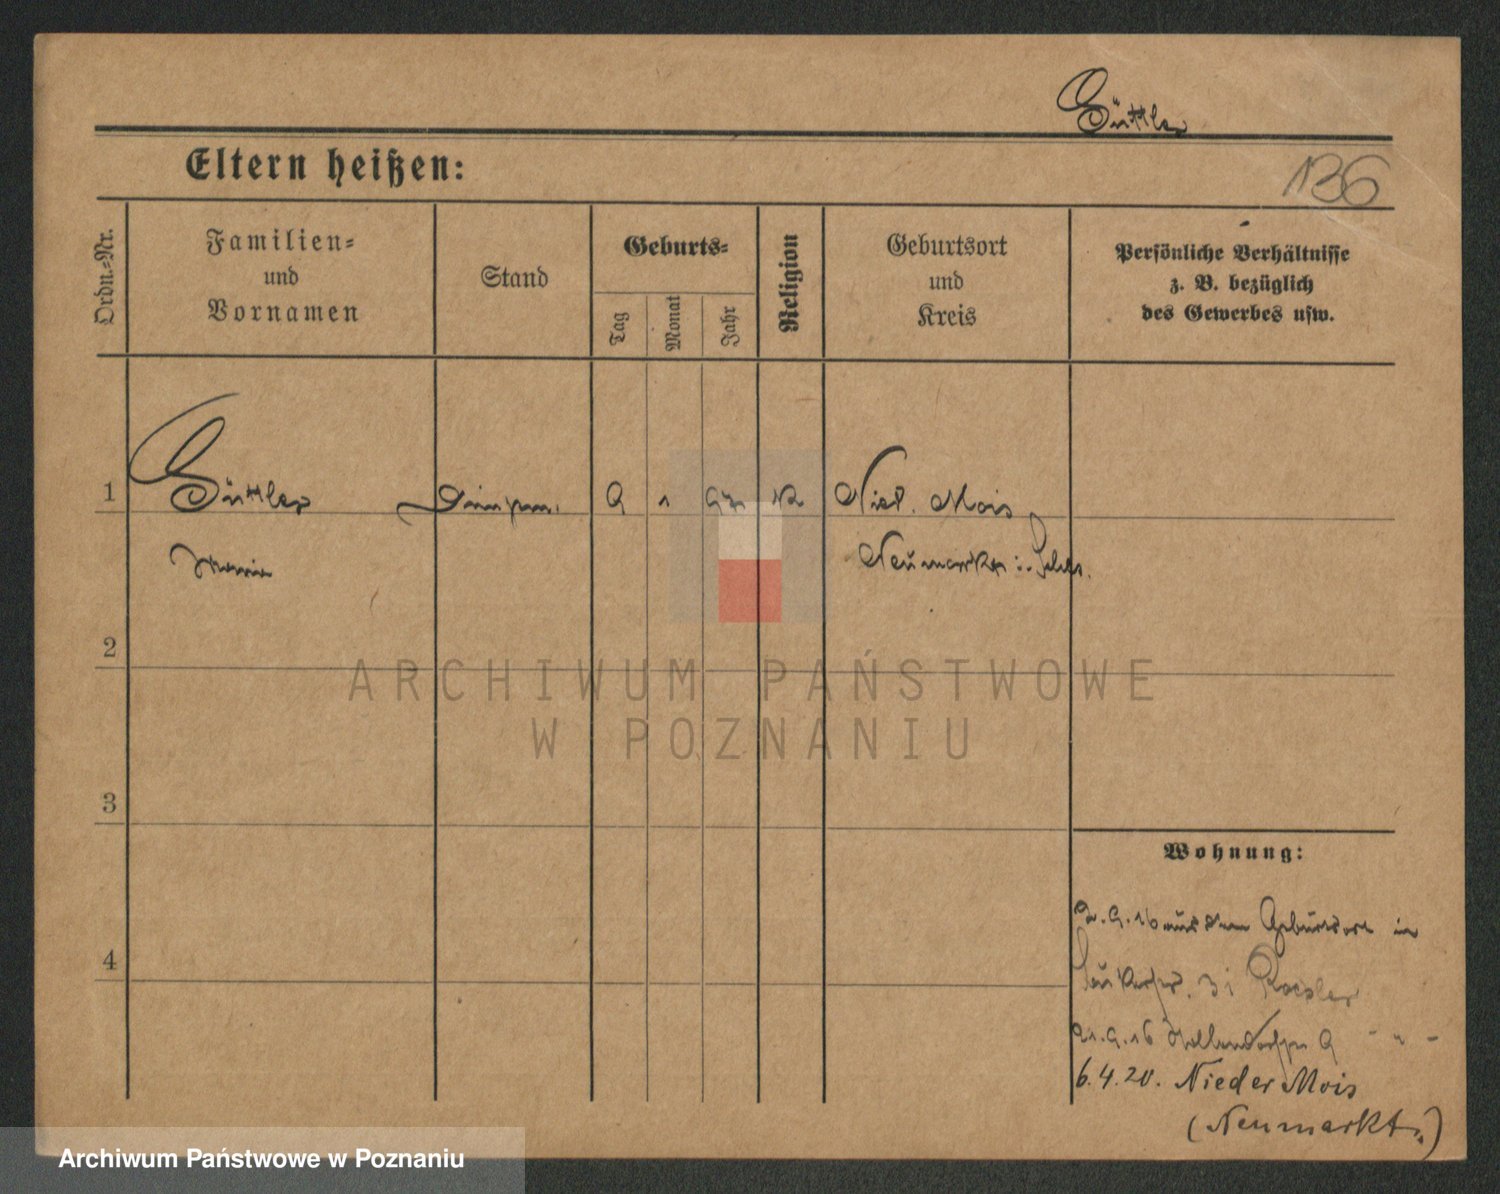 Güttler
Eltern heißen:
136
Ordn.-Nr.
Familien-
und
Vornamen
Stand
Geburts-
Tag
Monat
Jahr
Religion
Geburtsort
und
Kreis
Persönliche Verhältnisse
z. B. bezüglich
des Gewerbes usw.
1 Güttler 9 1 K Nied. Mois
Neumarkt i. Schles.
2
ARCHIWUM PAŃSTWOWE
W POZNANIU
3
Wohnung:
2.9.16 aus dem Geburtsort in
31 Roesler
4
21.9.16 9 " " "
6.4.20. Nieder Mois
(Neumarkt)
Archiwum Państwowe w Poznaniu